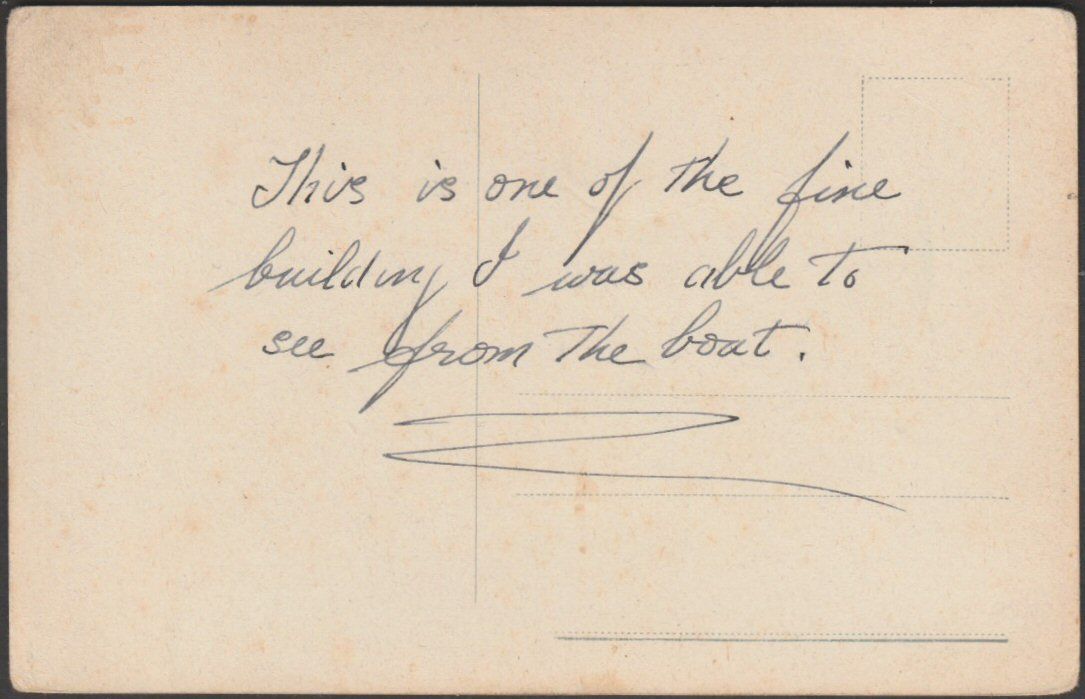 This is one of the fine
building I was able to
see from the boat.